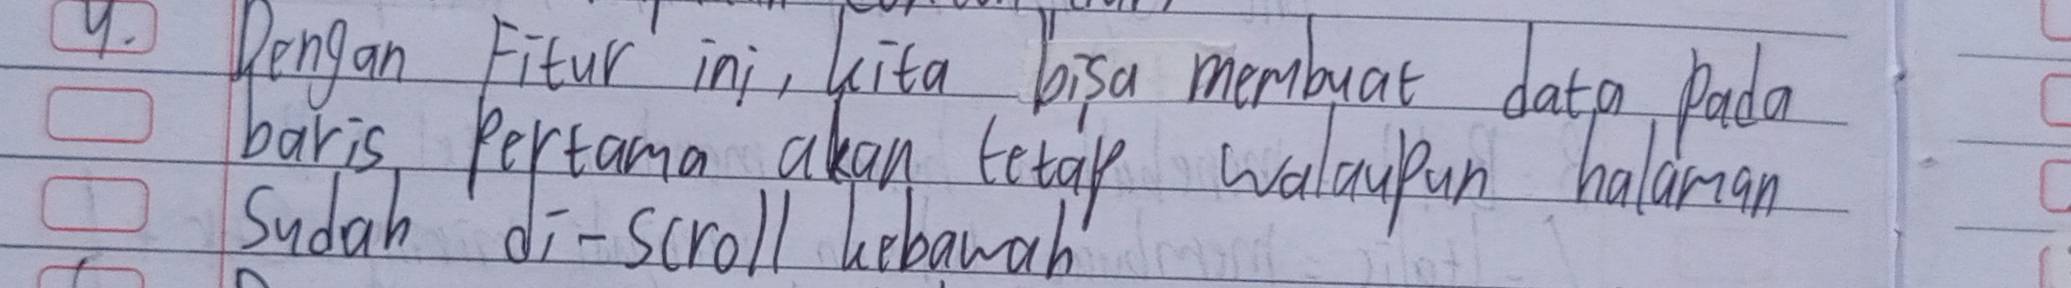 4. Dengan Fitur ini, kita bisa membuat data pada
baris Pertama akan tetap walaupun halaman
Sudah di-scroll kebawah